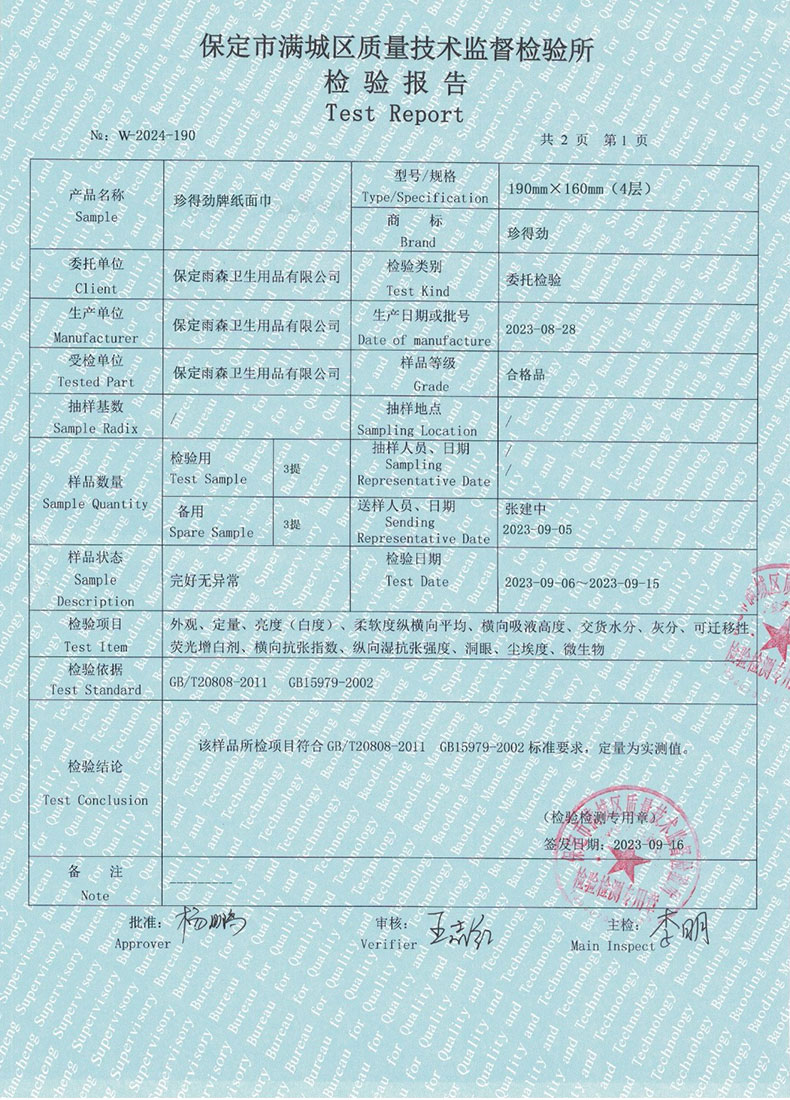 保定市满城区质量技术监督检验所
检验报告
Test Report
№: W-2024-190
共 2 页 第 1 页
产品名称
Sample
珍得劲牌纸面巾
型号/规格
Type/Specification
190mm×160mm（4层）
商 标
Brand
珍得劲
委托单位
Client
保定雨森卫生用品有限公司
检验类别
Test Kind
委托检验
生产单位
Manufacturer
保定雨森卫生用品有限公司
生产日期或批号
Date of manufacture
2023-08-28
受检单位
Tested Part
保定雨森卫生用品有限公司
样品等级
Grade
合格品
抽样基数
Sample Radix
/
抽样地点
Sampling Location
/
样品数量
Sample Quantity
检验用
Test Sample
3提
抽样人员、日期
Sampling
Representative Date
/
/
备用
Spare Sample
3提
送样人员、日期
Sending
Representative Date
张建中
2023-09-05
样品状态
Sample
Description
完好无异常
检验日期
Test Date
2023-09-06～2023-09-15
检验项目
Test Item
外观、定量、亮度（白度）、柔软度纵横向平均、横向吸液高度、交货水分、灰分、可迁移性
荧光增白剂、横向抗张指数、纵向湿抗张强度、洞眼、尘埃度、微生物
检验依据
Test Standard
GB/T20808-2011 GB15979-2002
检验结论
Test Conclusion
该样品所检项目符合GB/T20808-2011 GB15979-2002标准要求，定量为实测值。
（检验检测专用章）
签发日期：2023-09-16
检验检测专用章
备 注
Note
批准：杨鹏
Approver
审核：
Verifier
主检：李明
Main Inspect